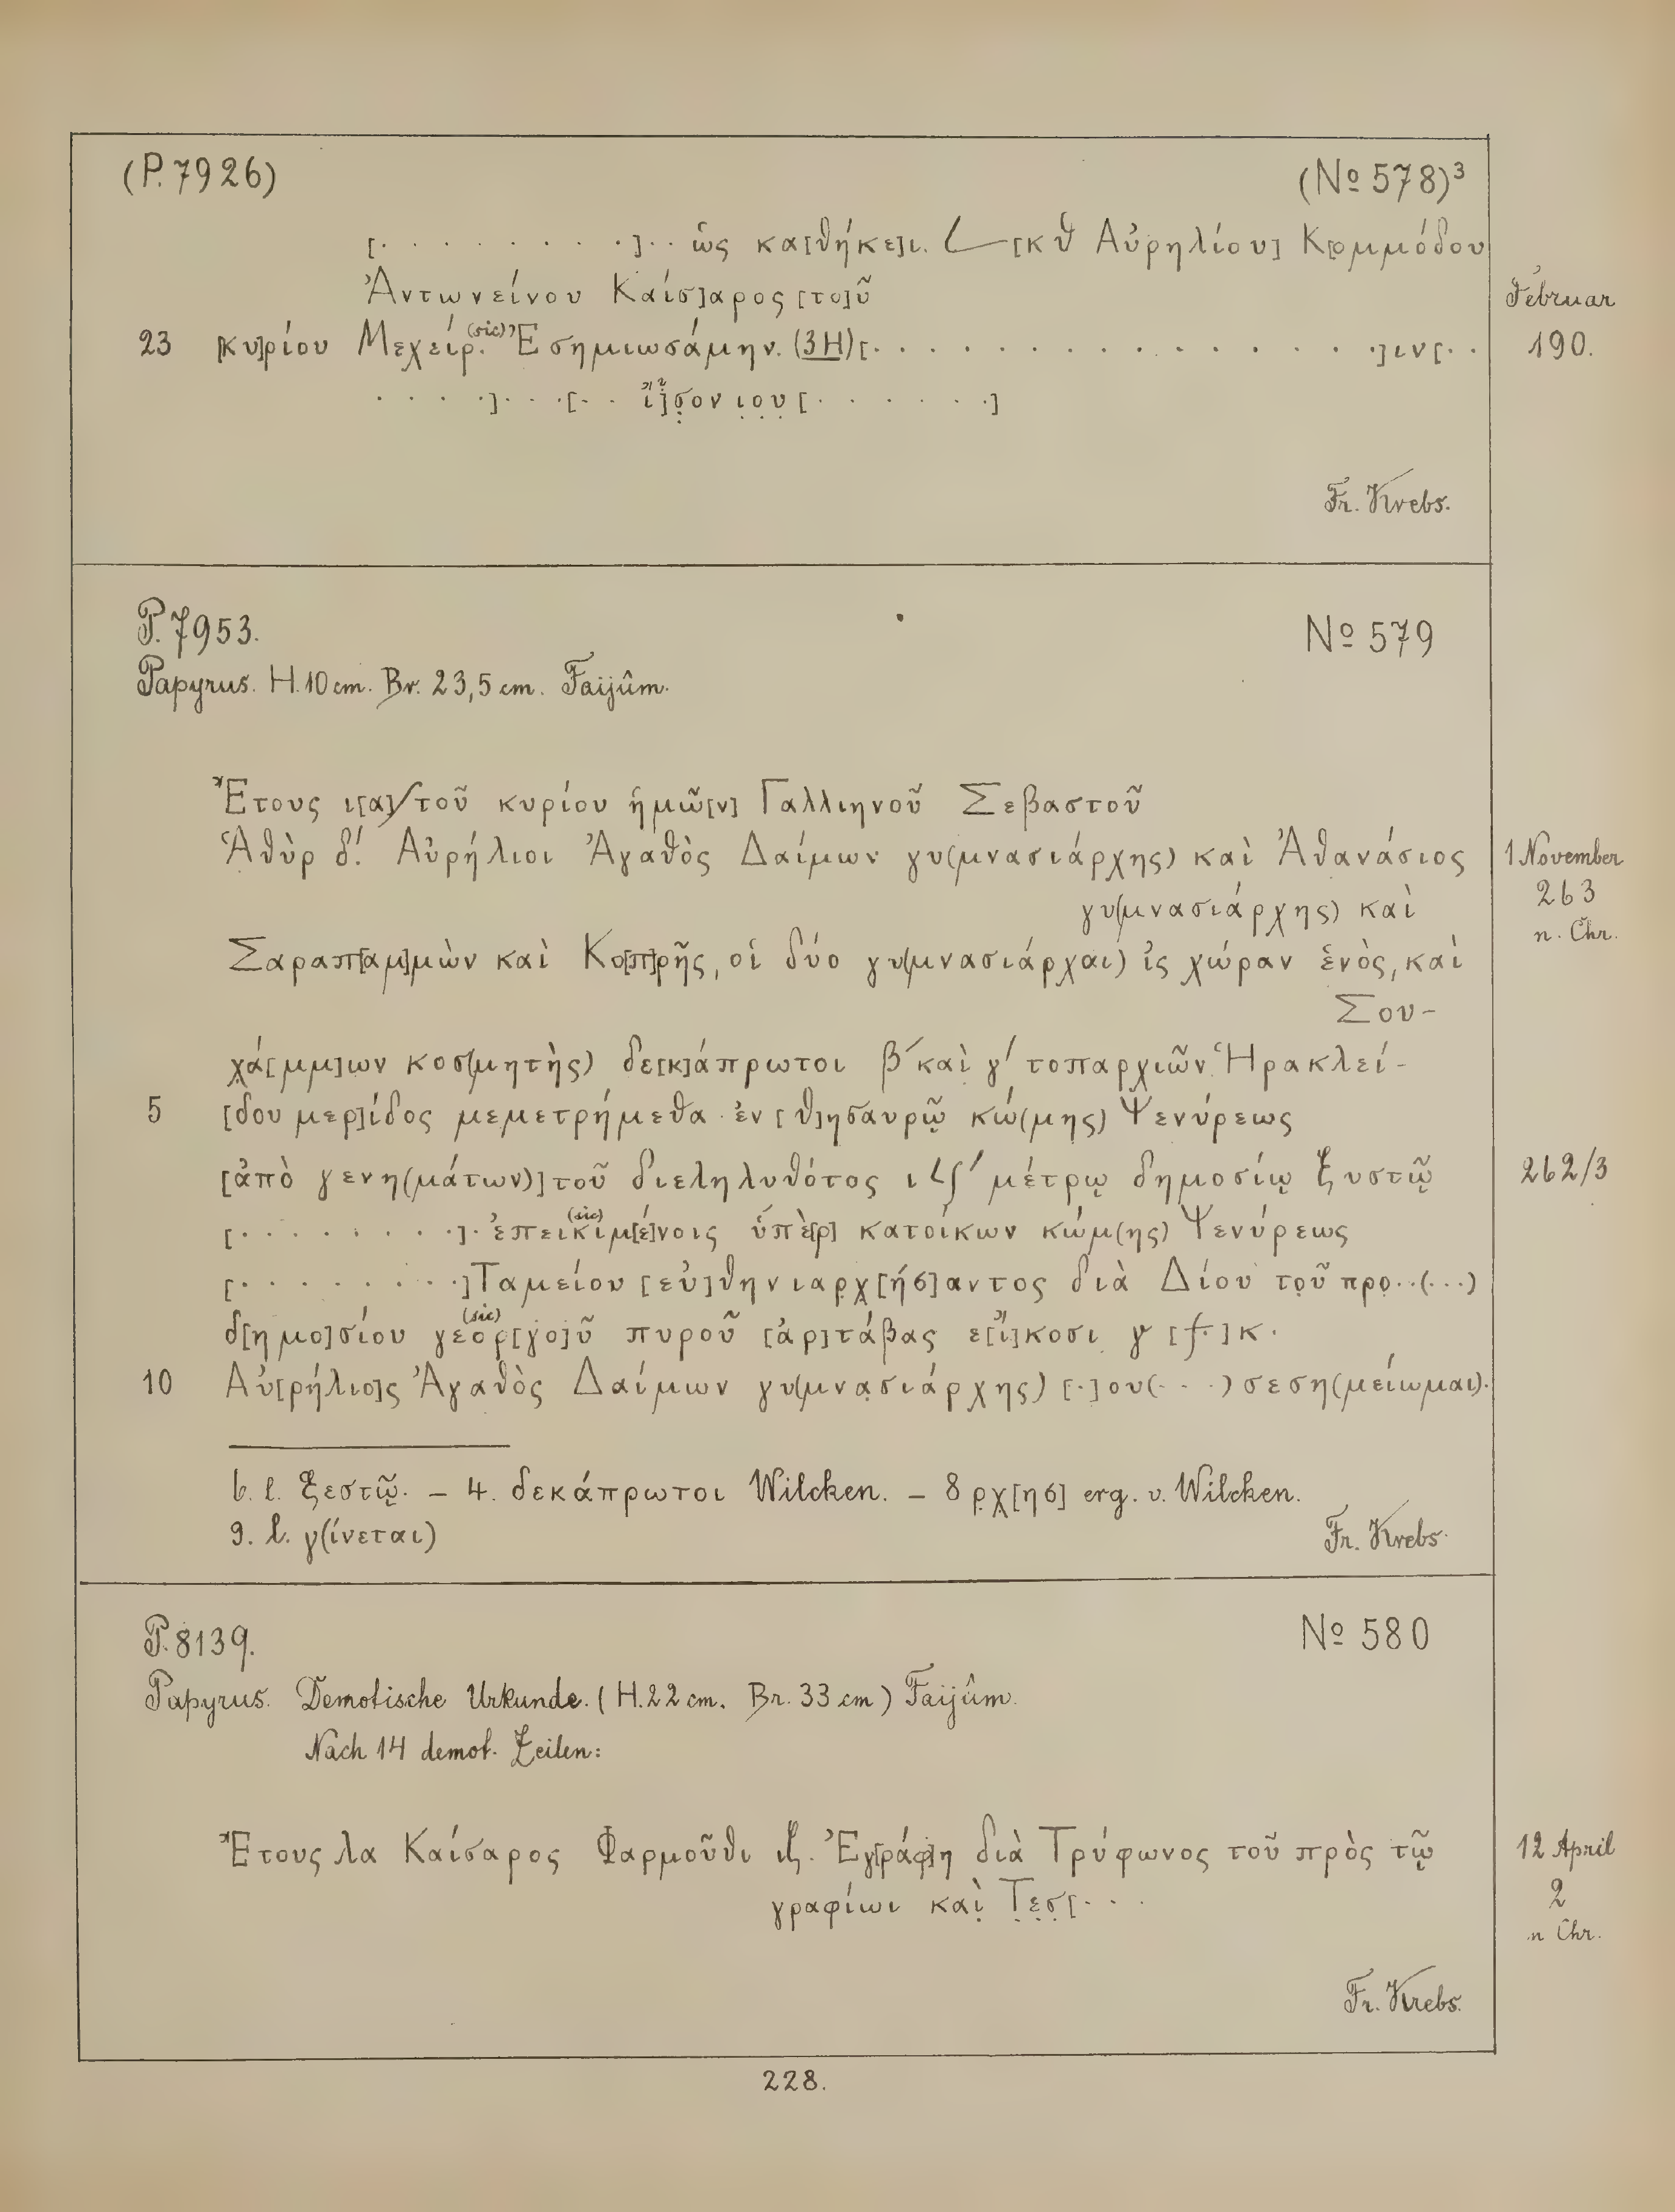 (P. 7926) (No 578)³
[. . . . . . . . .] . . ὡς κα[θήκε]ι. L [κθ Αὐρηλίου] Κ[ομμόδου
Ἀντωνείνου Καίσ]αρος [το]ῦ
Februar
23 [κυ]ρίου Μεχείρ. (sic) Ἐσημιωσάμην. (3H) [. . . . . . . . . . . . . . . .]ιν[. .
190.
. . . .] . . . [. . ἴ]σ̣ον ι̣ο̣υ̣ [. . . . . .]
Fr. Krebs.
P. 7953. No 579
Papyrus. H. 10 cm. Br. 23,5 cm. Faijûm.
Ἔτους ι[α]∫ τοῦ κυρίου ἡμῶ[ν] Γαλλιηνοῦ Σεβαστοῦ
Ἁθὺρ δ´. Αὐρήλιοι Ἀγαθὸς Δαίμων γυ(μνασιάρχης) καὶ Ἀθανάσιος
1 November
γυ(μνασιάρχης) καὶ
263
n. Chr.
Σαραπ[αμ]μὼν καὶ Κο[π]ρῆς, οἱ δύο γυ(μνασιάρχαι) ἰς χώραν ἑνὸς, καὶ
Σου-
χά[μμ]ων κοσ(μητὴς) δε[κ]άπρωτοι β´ καὶ γ´ τοπαρχιῶν Ἡρακλεί-
5 [δου μερ]ίδος μεμετρήμεθα ἐν [θ]ησαυρῷ κώ(μης) Ψενύρεως
[ἀπὸ γενη(μάτων)] τοῦ διεληλυθότος ι L∫´ μέτρῳ δημοσίῳ ξυστῷ
262/3
[. . . . . . . .]. ἐπεικιμ[έ]νοις (sic) ὑπὲ[ρ] κατοίκων κώμ(ης) Ψενύρεως
[. . . . . . . . .] Ταμείου [εὐ]θηνιαρ̣χ̣[ήσ]αντος διὰ Δίου το̣ῦ προ̣..(...)
δ[ημο]σίου γεορ[γο]ῦ (sic) πυροῦ [ἀρ]τάβας ε[ἴ]κοσι γ [f.] κ.
10 Αὐ[ρήλιο]ς Ἀγαθὸς Δαίμων γυ(μνασιάρχης) [.]ου(. . .) σεση(μείωμαι).
6. l. ξεστῷ. – 4. δεκάπρωτοι Wilcken. – 8 ρ̣χ̣[ησ] erg. v. Wilcken.
9. l. γ(ίνεται)
Fr. Krebs.
P. 8139. No 580
Papyrus. Demotische Urkunde. (H. 22 cm. Br. 33 cm) Faijûm.
Nach 14 demot. Zeilen:
Ἔτους λα Καίσαρος Φαρμοῦθι ιζ. Ἐγ[ράφ]η διὰ Τρύφωνος τοῦ πρὸς τῷ
12 April
γραφίωι καὶ̣ Τ̣ε̣σ̣[. . .
2
n Chr.
Fr. Krebs.
228.